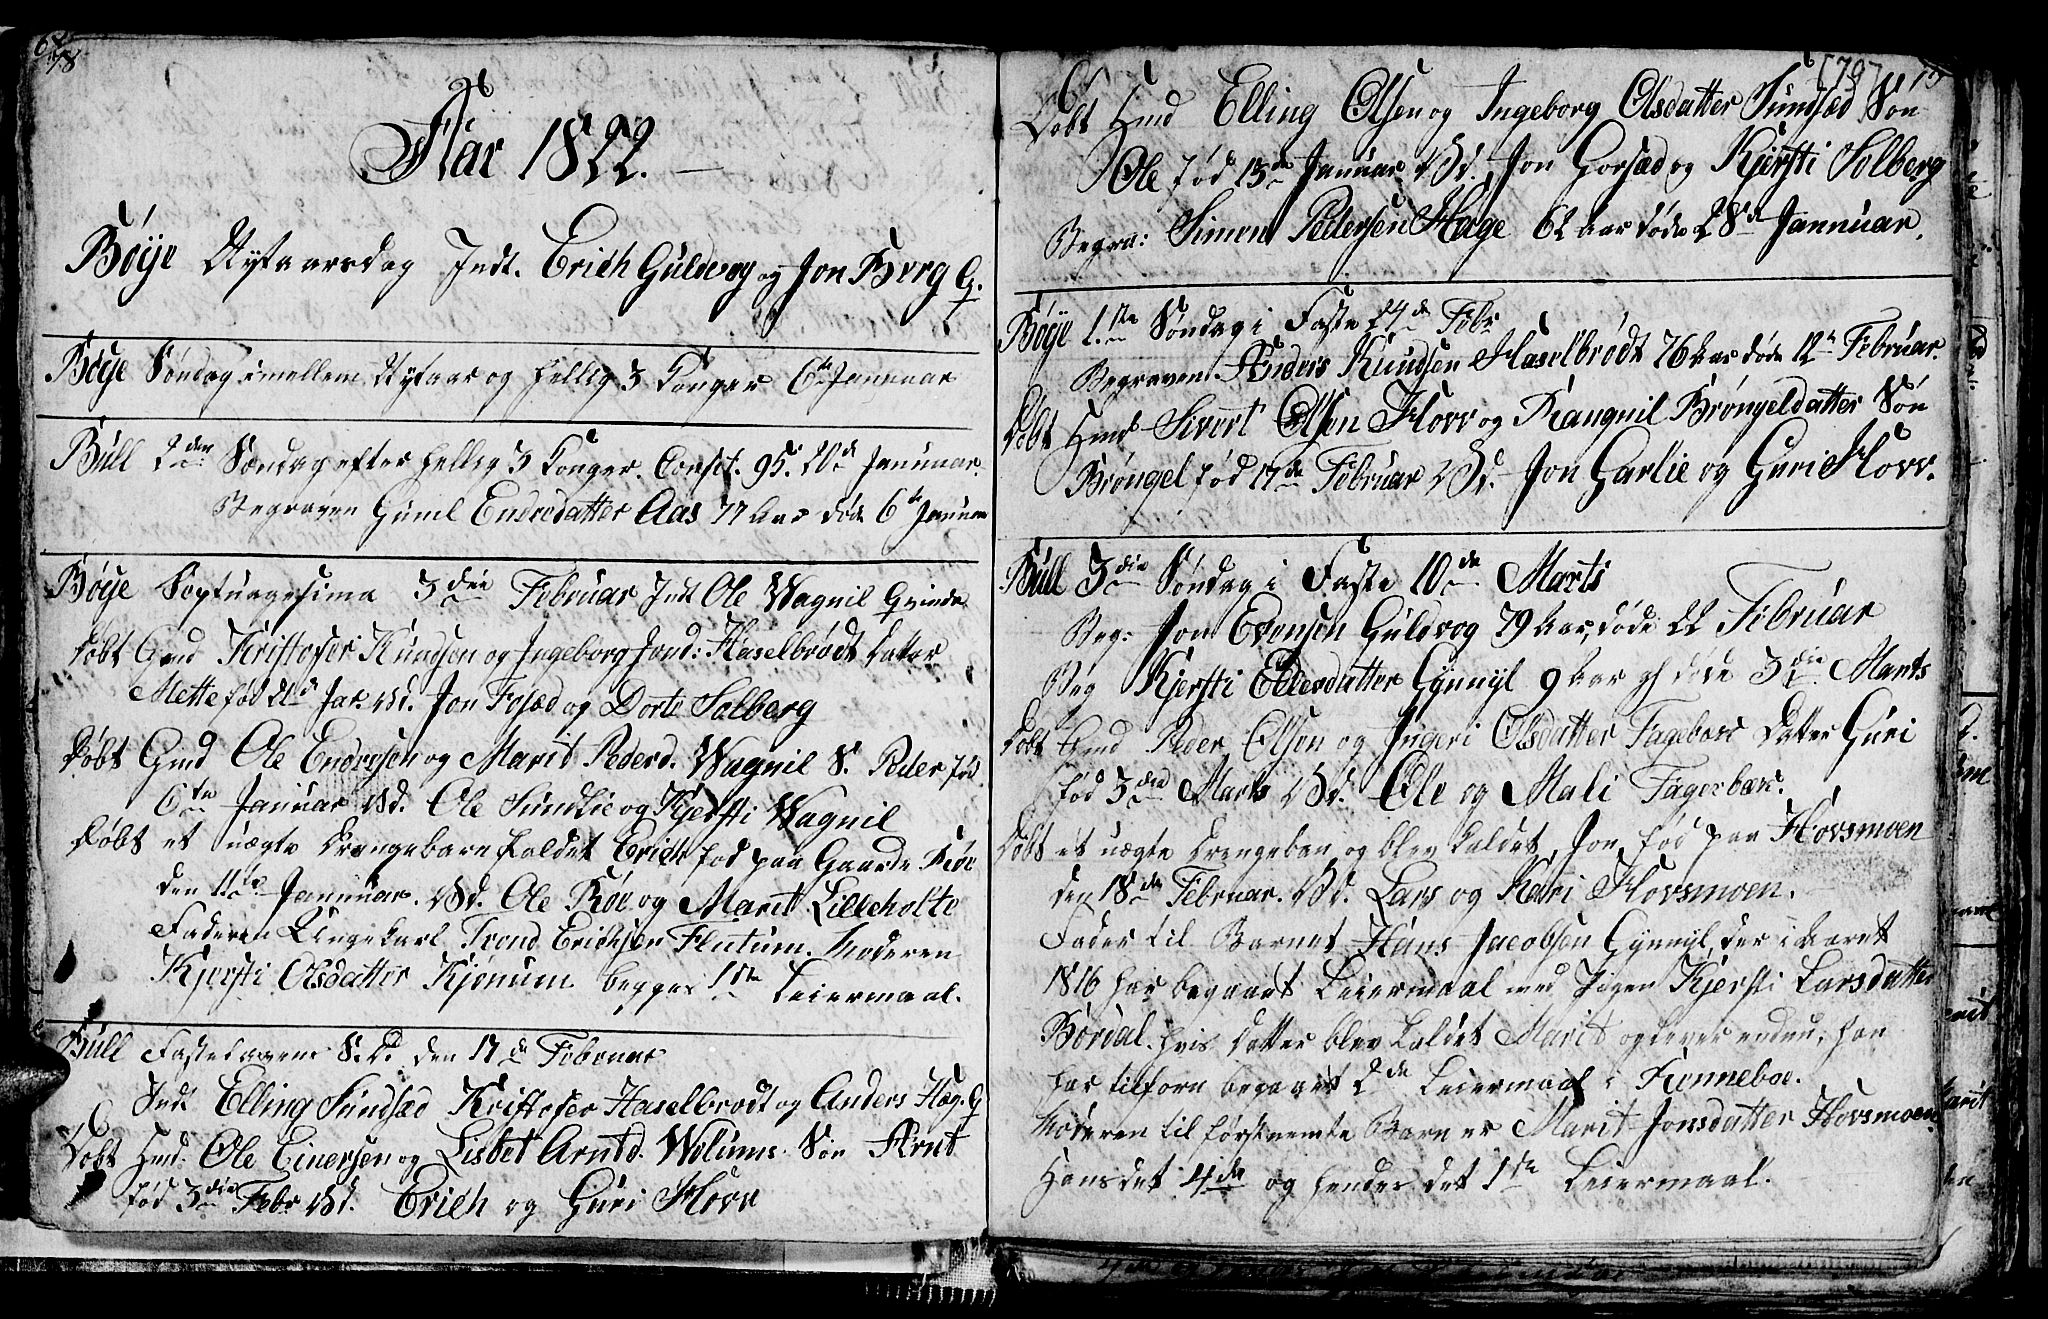 78
Aar 1822.
Böÿe Nytaarsdag Indt. Erich Guldvog og Jon Berg Q.
Böÿe Söndag imellem Nytaar og hellig 3 Konger 6te Januar
Búll 2den Söndag efter hellig 3 Konger. Consit. 95. 20de Januar.
Begraven Guml Endresdatter Aas 77 Aar döde 6te Januar
Böÿe Septuagesima 3die Februar Indt Ole Wagnil Qvinde
Döbt Gmd Kristofer Knudsen og Ingeborg Jond: Haselbrödt Datter
Mette föd 21de Jar. Vd. Jon Fosæd og Dorte Solberg
Döbt Gmd Ole Endresen og Marit Pederd. Wagnil S. Peder föd
6te Januar Vd. Ole Sundlie og Kjersti Wagnil
Döbt et uægte Drengebarn kaldet Erich föd paa Gaarde Röe
den 11te Januar. Vd. Ole Röe og Marit Lilleholte
Faderen Ungekarl Trond Erichsen Flutum. Moderen
Kjersti Olsdatter Kjönum begges 1ste Leiermaal.
Búll Fastelavens S.D. den 17de Februar
Indt Elling Sundsæd Kristofer Haselbrödt og Anders Hæg. Q
Döbt Hmd. Ole Einersen og Lisbet Arntd. Wolums Sön Arnt
föd 3die Febr Vd. Erich og Guri Hovr
[79]
Döbt Hmd Elling Olsen og Ingeborg Olsdatter Sundsæd Sön
Ole föd 13de Januar Vd. Jon Gorsæd og Kjersti Solberg
Begra: Simen Pedersen Hage 62 Aar döde 28de Januar.
Böÿe 1.ste Söndag i Faste 24de Febr
Begraven Anders Knudsen Haselbrödt 76 Aar döde 12te Februar.
Döbt Hmd Sivert Olsen Hovr og Rangnil Bröngeldatter Sön
Bröngel föd 17de Februar Vd. Jon Garlie og Guri Hovr.
Búll 3die Söndag i Faste 10de Marts
Beg: Jon Evensen Guldvog 79 Aar, döde 22 Februar
Beg Kjersti Ellersdatter Gynnyl 9 Aar gl döde 3die Marts
Döbt Gmd Peder Olsen og Ingeri Olsdatter Fagebær Datter Guri
föd 3die Marts Vd. Ole og Mali Fagerbær.
Döbt et uægte Drengeban og blev kaldet, Jon föd paa Hovsmoen
den 18de Februar. Vd. Lars og Kari Hovsmoen.
Fader til Barnet Hans Jacobsen Gynnyl, der i Aaret
1816 har begaaet Leiermaal med Pigen Kjersti Larsdatter
Bordal. hvis Datter blev kaldet Marit og lever endnu; han
har tilforn begaaet 2de Leiermaal i Renneboe.
Moderen til förstnemte Barn er Marit Jonsdatter Hovsmoen.
Hans det 4de og hendes det 1ste Leiermaal.